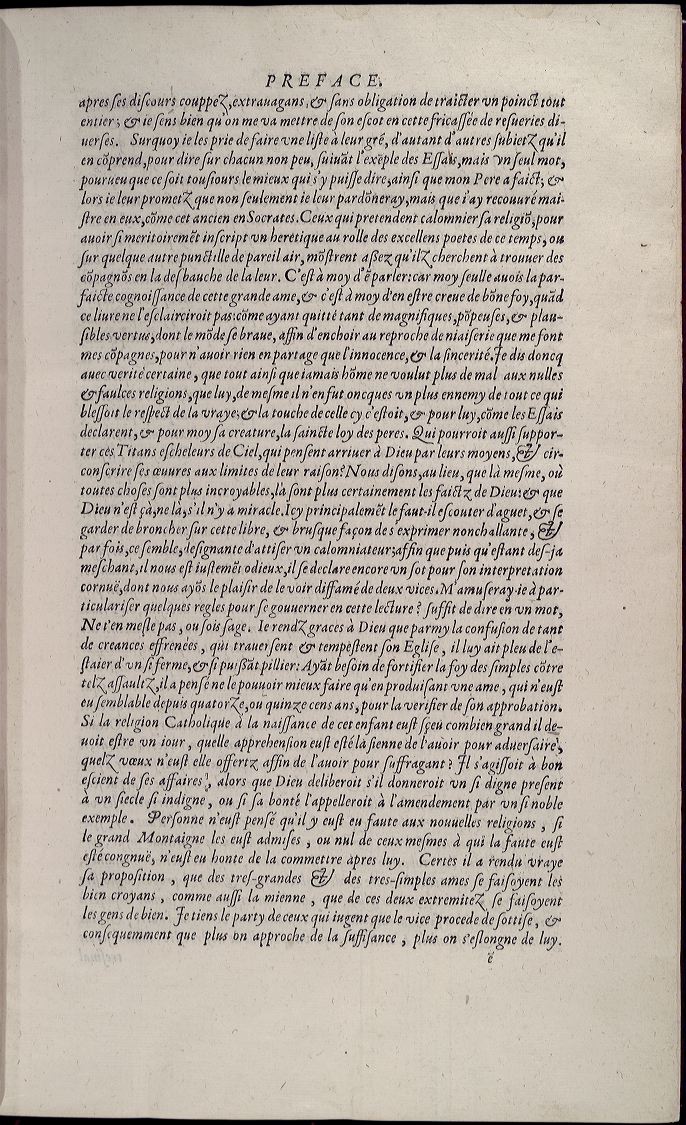 PREFACE.
apres ses discours couppez, extrauagans, & sans obligation de traicter vn poinct tout
entier; & ie sens bien qu'on me va mettre de son escot en cette fricassée de resueries di-
uerses. Surquoy ie les prie de faire vne liste à leur gré, d'autant d'autres subietz qu'il
en cõprend, pour dire sur chacun non peu, suiuãt l'exẽple des Essais, mais vn seul mot,
pourueu que ce soit tousiours le mieux qui s'y puisse dire, ainsi que mon Pere a faict; &
lors ie leur prometz que non seulement ie leur pardõneray, mais que i'ay recouuré mai-
stre en eux, cõme cet ancien en Socrates. Ceux qui pretendent calomnier sa religiõ, pour
auoir si meritoiremẽt inscript vn heretique au rolle des excellens poetes de ce temps, ou
sur quelque autre punctille de pareil air, mõstrent assez qu'ilz cherchent à trouuer des
cõpagnõs en la desbauche de la leur. C'est à moy d'ẽ parler: car moy seulle auois la par-
faicte cognoissance de cette grande ame, & c'est à moy d'en estre creue de bõne foy, quãd
ce liure ne l'esclairciroit pas: cõme ayant quitté tant de magnifiques, põpeuses, & plau-
sibles vertus, dont le mõde se braue, affin d'enchoir au reproche de niaiserie que me font
mes cõpagnes, pour n'auoir rien en partage que l'innocence, & la sincerité. Je dis doncq
auec verité certaine, que tout ainsi que iamais hõme ne voulut plus de mal aux nulles
& faulces religions, que luy, de mesme il n'en fut oncques vn plus ennemy de tout ce qui
blessoit le respect de la vraye; & la touche de celle cy c'estoit, & pour luy, cõme les Essais
declarent, & pour moy sa creature, la saincte loy des peres. Qui pourroit aussi suppor-
ter ces Titans escheleurs de Ciel, qui pensent arriuer à Dieu par leurs moyens, & cir-
conscrire ses œuures aux limites de leur raison? Nous disons, au lieu, que là mesme, où
toutes choses sont plus incroyables, là sont plus certainement les faictz de Dieu: & que
Dieu n'est çà, ne là, s'il n'y a miracle. Icy principalemẽt le faut-il escouter d'aguet, & se
garder de broncher sur cette libre, & brusque façon de s'exprimer nonchallante, &
par fois, ce semble, designante d'attiser vn calomniateur; affin que puis qu'estant des-ja
meschant, il nous est iustemẽt odieux, il se declare encore vn sot pour son interpretation
cornuë, dont nous ayõs le plaisir de le voir diffamé de deux vices. M'amuseray-ie à par-
ticulariser quelques regles pour se gouuerner en cette lecture? suffit de dire en vn mot,
Ne t'en mesle pas, ou sois sage. Ie rendz graces à Dieu que parmy la confusion de tant
de creances effrenées, qui trauersent & tempestent son Eglise, il luy ait pleu de l'e-
staier d'vn si ferme, & si puissãt pillier: Ayãt besoin de fortifier la foy des simples cõtre
telz assaultz, il a pensé ne le pouuoir mieux faire qu'en produisant vne ame, qui n'eust
eu semblable depuis quatorze, ou quinze cens ans, pour la verifier de son approbation.
Si la religion Catholique à la naissance de cet enfant eust sçeu combien grand il de-
uoit estre vn iour, quelle apprehension eust esté la sienne de l'auoir pour aduersaire,
quelz vœux n'eust elle offertz affin de l'auoir pour suffragant? Il s'agissoit à bon
escient de ses affaires, alors que Dieu deliberoit s'il donneroit vn si digne present
à vn siecle si indigne, ou si sa bonté l'appelleroit à l'amendement par vn si noble
exemple. Personne n'eust pensé qu'il y eust eu faute aux nouuelles religions, si
le grand Montaigne les eust admises, ou nul de ceux mesmes à qui la faute eust
esté congnuë, n'eust eu honte de la commettre apres luy. Certes il a rendu vraye
sa proposition, que des tres-grandes & des tres-simples ames se faisoyent les
bien croyans, comme aussi la mienne, que de ces deux extremitez se faisoyent
les gens de bien. Je tiens le party de ceux qui iugent que le vice procede de sottise, &
consequemment que plus on approche de la suffisance, plus on s'eslongne de luy.
ë